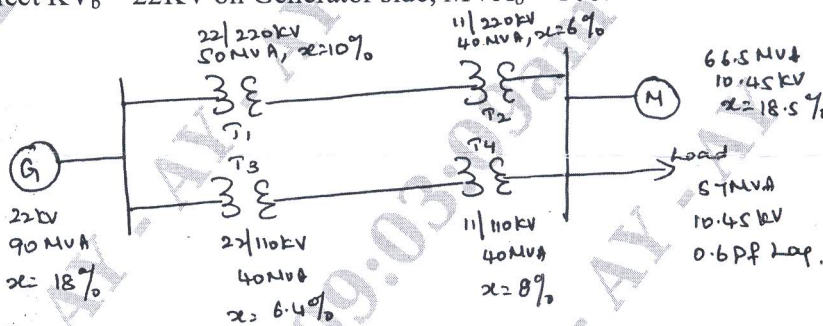 22/220KV
50 MVA, x=10%
11/220KV
40 MVA, x=6%
66.5 MVA
10.45KV
x=18.5%
T1
T2
M
G
T3
T4
Load
22KV
90 MVA
x= 18%
22/110KV
40MVA
x= 6.4%
11/110KV
40MVA
x=8%
57MVA
10.45KV
0.6 Pf Lag.